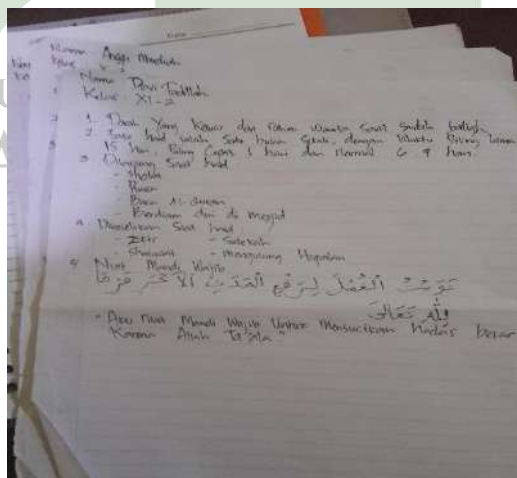 Nama : Anggi
Kelas :
Nama : Devi Fadillah
Kelas : XI-2
1. Darah Yang Keluar dari rahim wanita Saat Sudah baligh
2. haid adalah Satu bulan Sekali, dengan Waktu Paling lama
15 Hari, Paling Cepat 1 hari dan Normal 6 hari.
3. Dilarang Saat haid
- Sholat
- Puasa
- Baca Al-Quran
- Berdiam diri di masjid
4. Saat haid
- Zikir - Sedekah
- Sholawat - Mengulang Hapalan
5. Niat Mandi Wajib
نَوَيْتُ الْغُسْلَ لِرَفْعِ الْحَدَثِ الْأَكْبَرِ فَرْضًا
لِلَّهِ تَعَالَى
"Aku niat Mandi Wajib Untuk Mensucikan Hadas besar
Karena Allah Ta'ala"